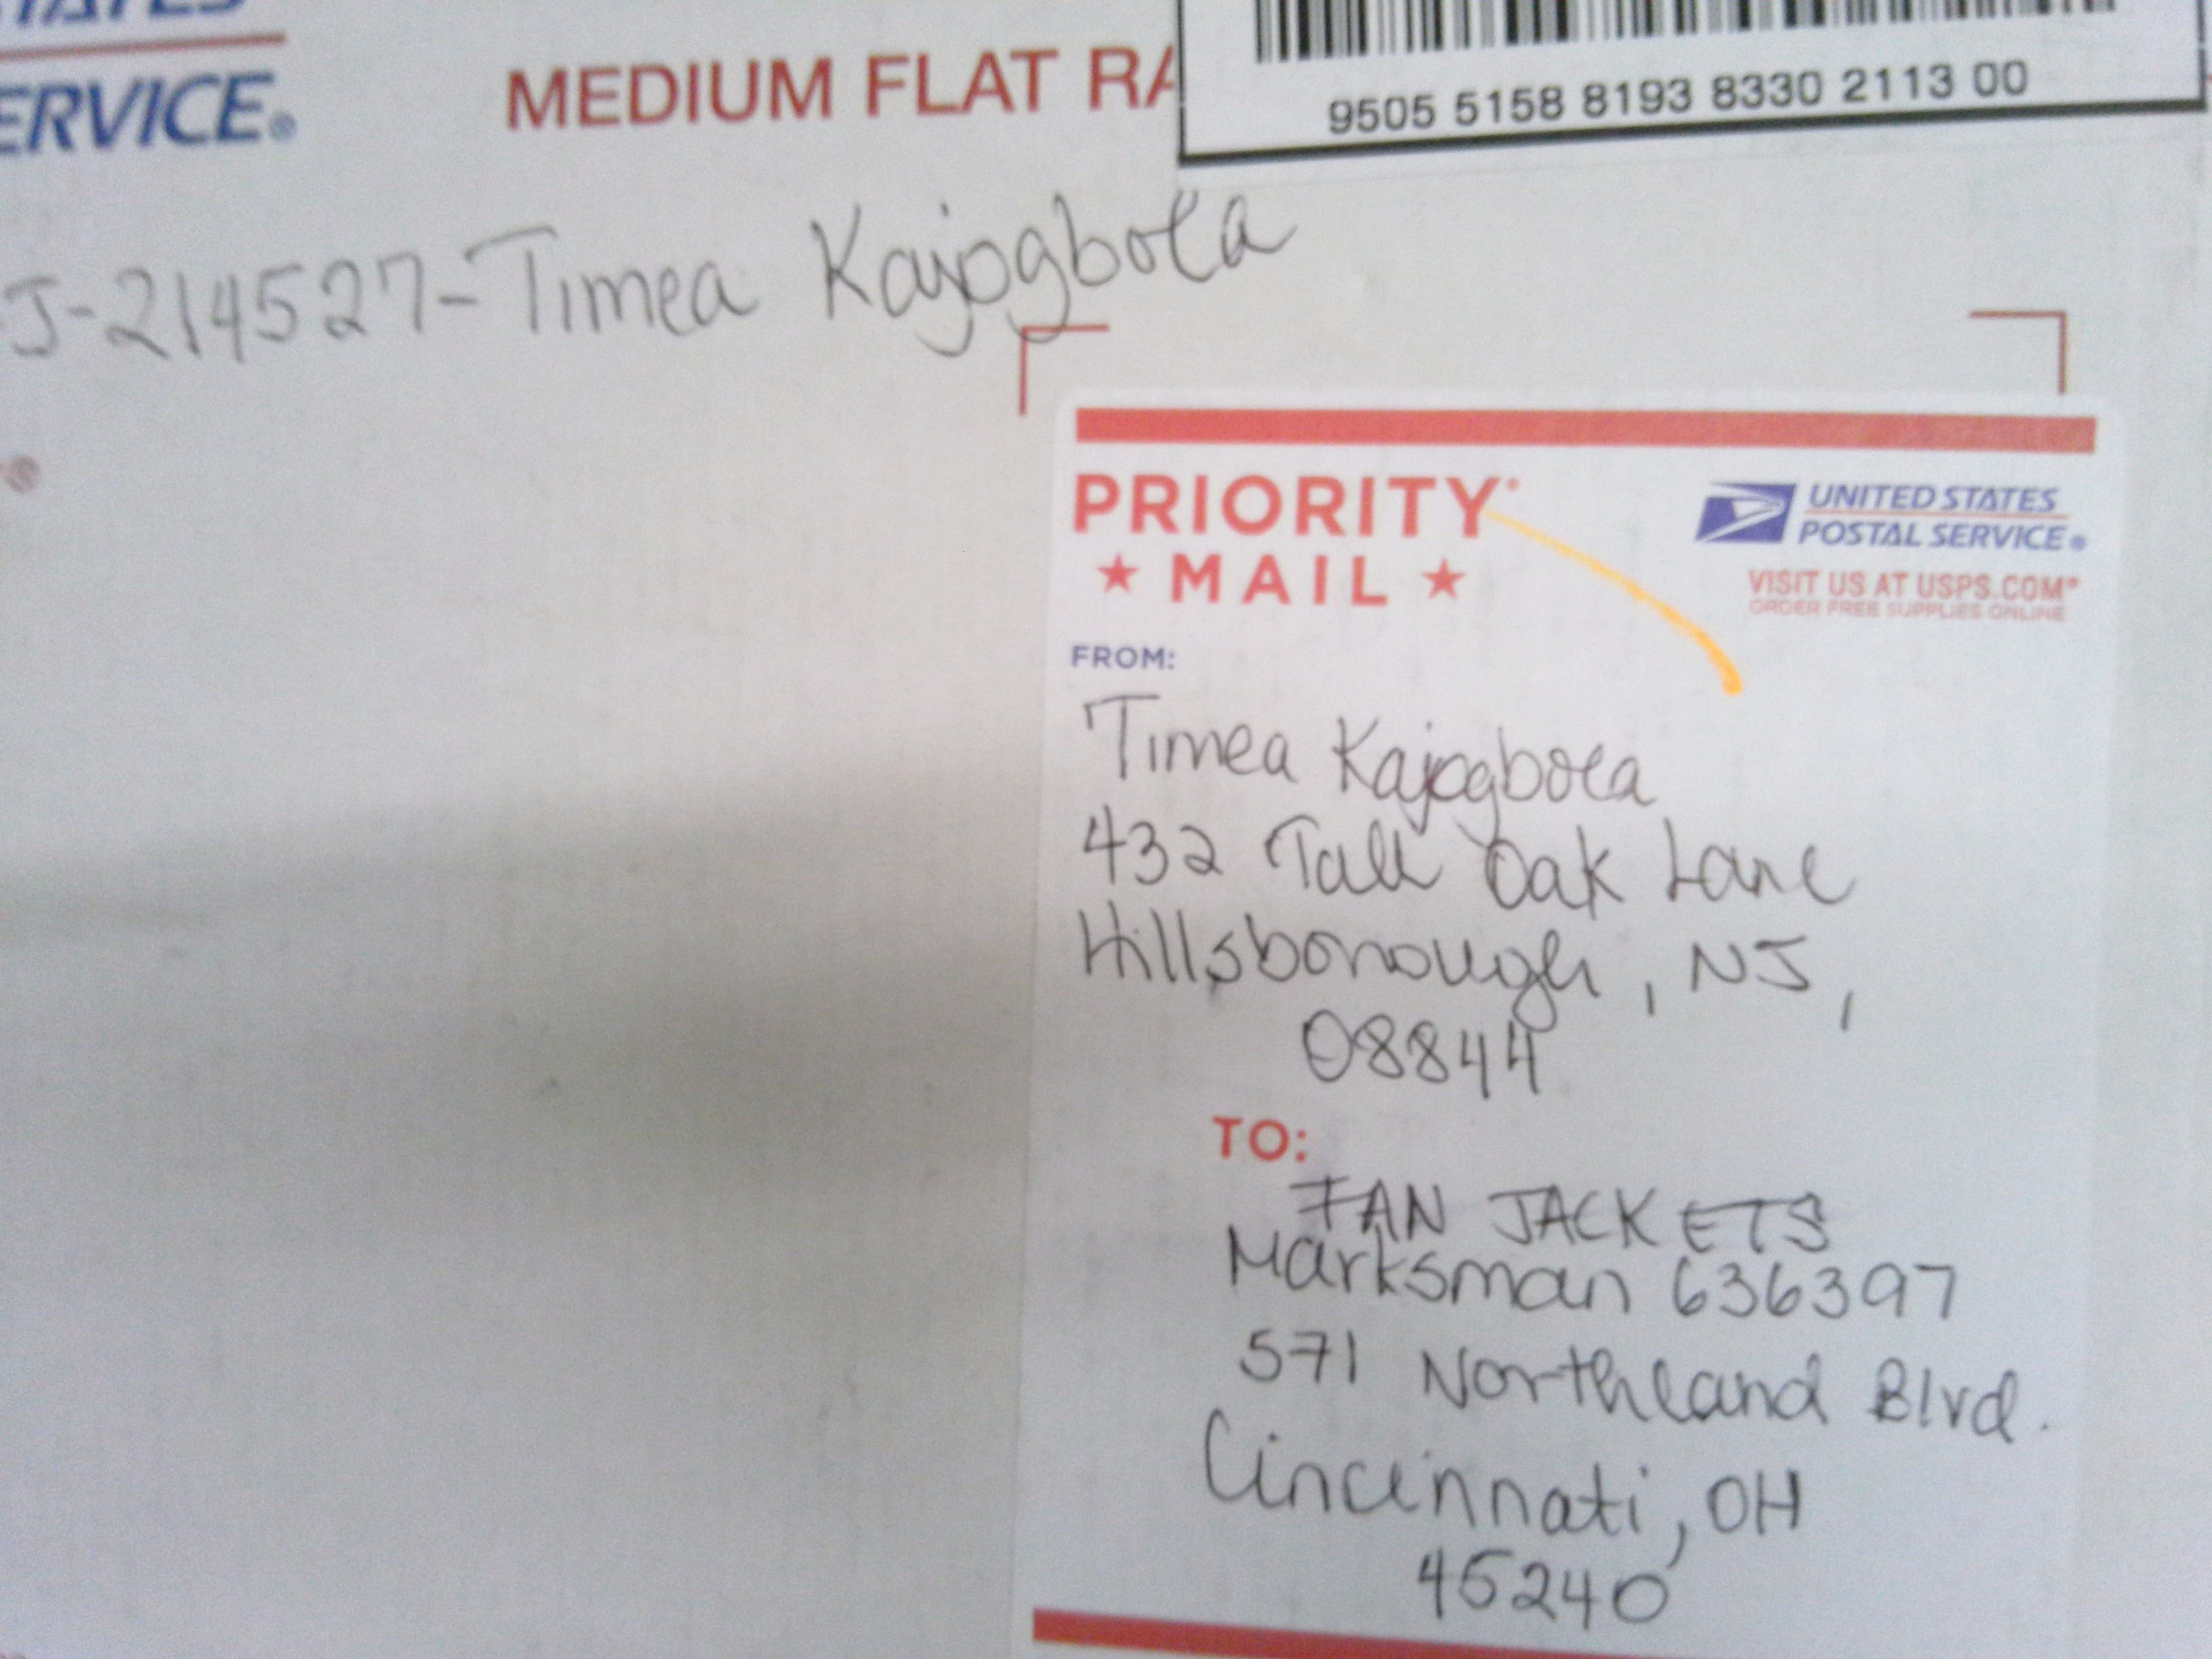 TATES
ERVICE®
MEDIUM FLAT RA
9505 5158 8193 8330 2113 00
J-214527-Timea Kajogbola
PRIORITY®
★ MAIL ★
UNITED STATES
POSTAL SERVICE®
VISIT US AT USPS.COM®
ORDER FREE SUPPLIES ONLINE
FROM:
Timea Kajogbola
432 Tall Oak Lane
Hillsborough, NJ,
08844
TO:
FAN JACKETS
Marksman 636397
571 Northland Blvd.
Cincinnati, OH
45240